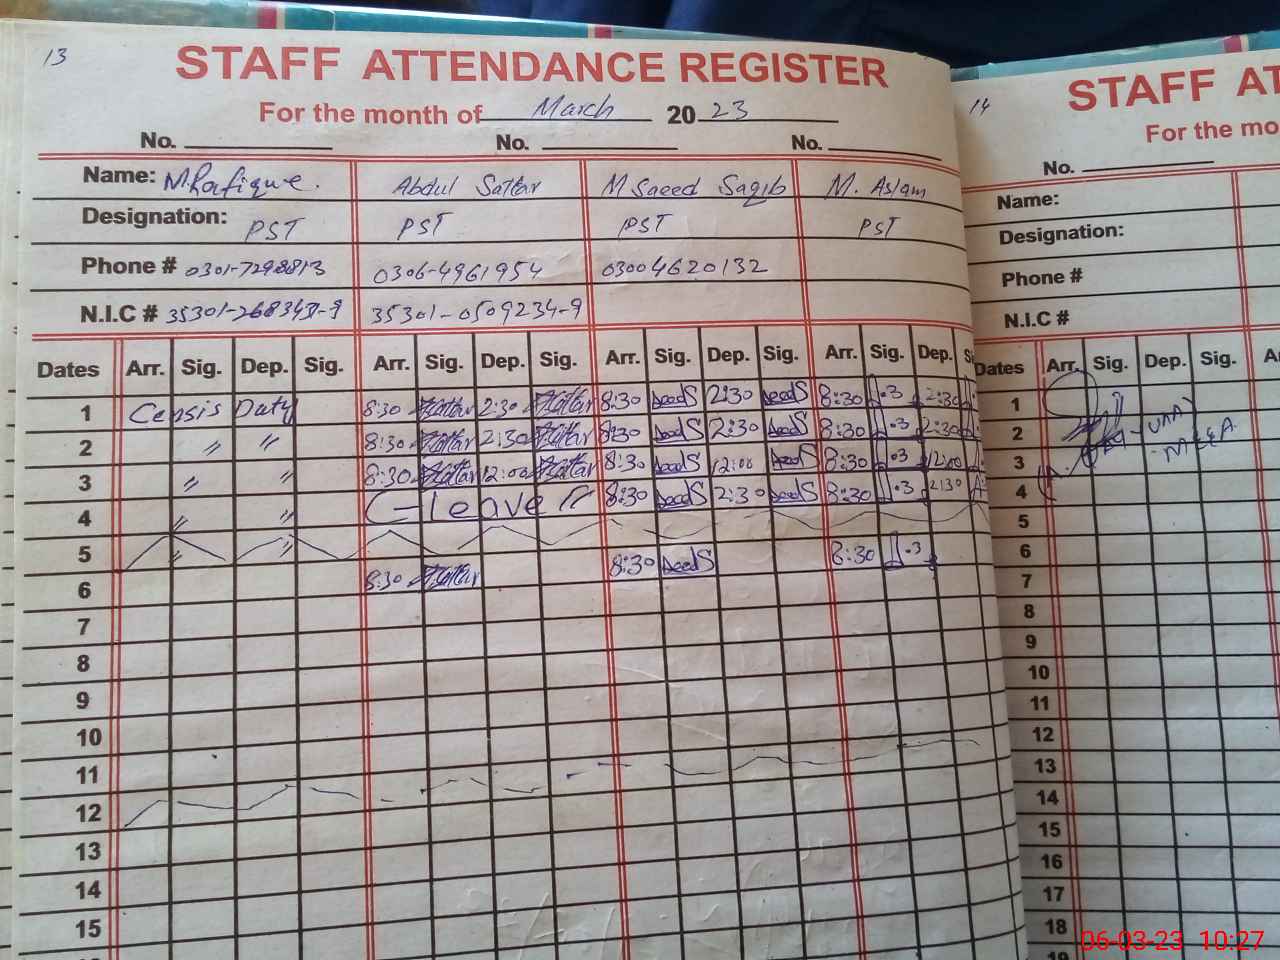 13
STAFF ATTENDANCE REGISTER
For the month of March 2023
No. No. No.
Name: M.Rafique. Abdul Sattar M Saeed Saqib M. Aslam
Designation: PST PST PST PST
Phone # 0301-7298813 0306-4961954 03004620132
N.I.C # 35301-2683431-9 35301-0509234-9
Dates Arr. Sig. Dep. Sig. Arr. Sig. Dep. Sig. Arr. Sig. Dep. Sig. Arr. Sig. Dep. Si
1 Censis Duty 8:30 Sattar 2:30 Sattar 8:30 2:30 8:30 2:30
2 〃 〃 8:30 Sattar 2:30 Sattar 8:30 2:30 8:30 2:30
3 〃 〃 8:30 Sattar 12:00 Sattar 8:30 12:00 8:30 12:00
4 〃 〃 C-leave 8:30 2:30 8:30 2:30
5 〃 〃
6 8:30 Sattar 8:30 8:30
7
8
9
10
11
12
13
14
15
14
STAFF AT
For the mo
No.
Name:
Designation:
Phone #
N.I.C #
Dates Arr. Sig. Dep. Sig. A
1
2
3
4
5
6
7
8
9
10
11
12
13
14
15
16
17
18
19
06-03-23 10:27